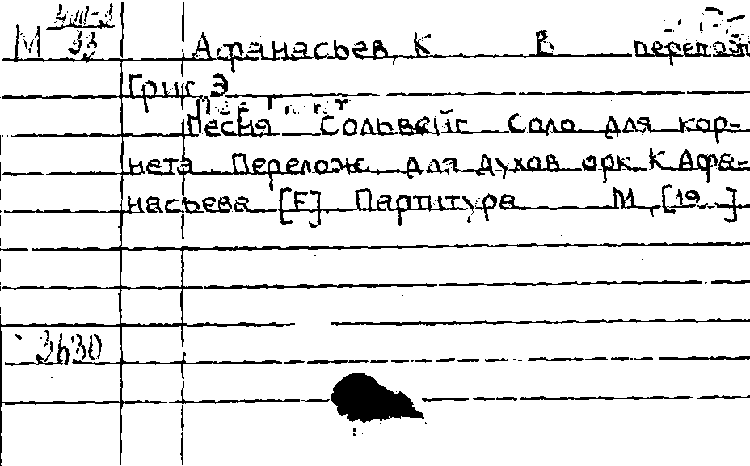 М VIII-3
33
Афанасьев К В перелож
Григ Э
Пер Гюнт
Песня Сольвейг Соло для кор-
нета Перелож. для духов орк К Афа-
насьева [F]. Партитура М., [19 ]
3630